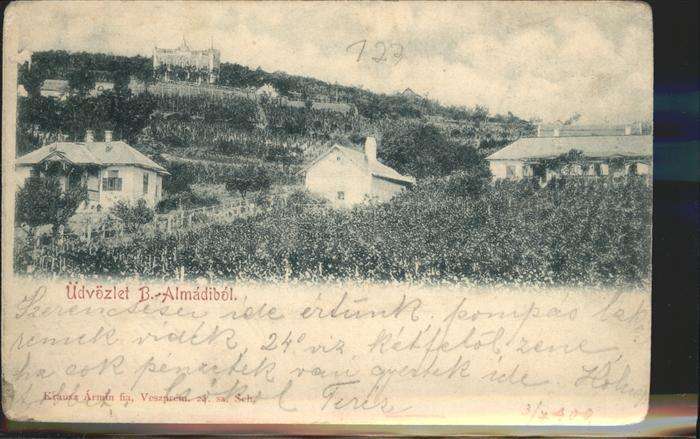 127
Üdvözlet B.-Almádiból.
Szerencsésen ide értünk. pompas
remek vidék 24° viz kétféle zene,
ha sok pénzetek van gyertek ide.
csókol Terez
Krausz Ármin fia, Veszprém. 23. sz. Sch.